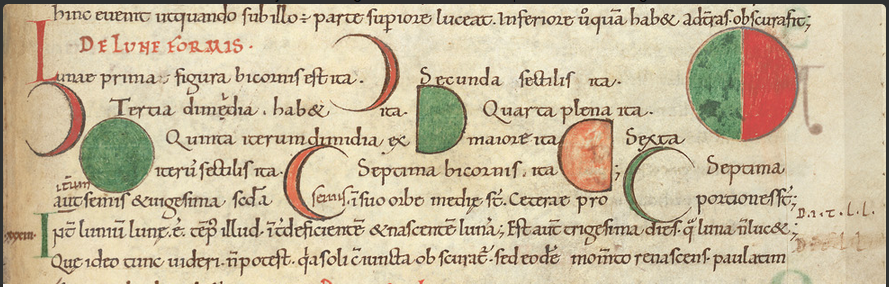 hinc evenit ut quando sub illo ÷ parte superiore luceat. Inferiore v̊ quā hab& ad t̄ras obscura sit;
DE LUNE FORMIS.
Lunae prima figura bicornis est ita. Secunda sectilis ita.
Tertia dimedia. hab& ita. Quarta plena ita.
Quinta iterum dimidia, ex maiore ita Sexta
iterū sectilis ita. Septima bicornis. ita ; Septima
aut̄ semis & vigesima sc̄da semis. ī suo orbe medie st̄. Ceterae pro portiones st̄;
xxxiii. Int̄luniū lunę. ē. tēp̄ illud. int̄ deficientē & nascentē lunā; Est aut̄ trigesima dies. q̄ luna n̄ luc&;
Que ideo tunc videri. n̄ potest. q̄a soli c̄iuncta obscurat̄. sed eodē momīto renascens. paulatim